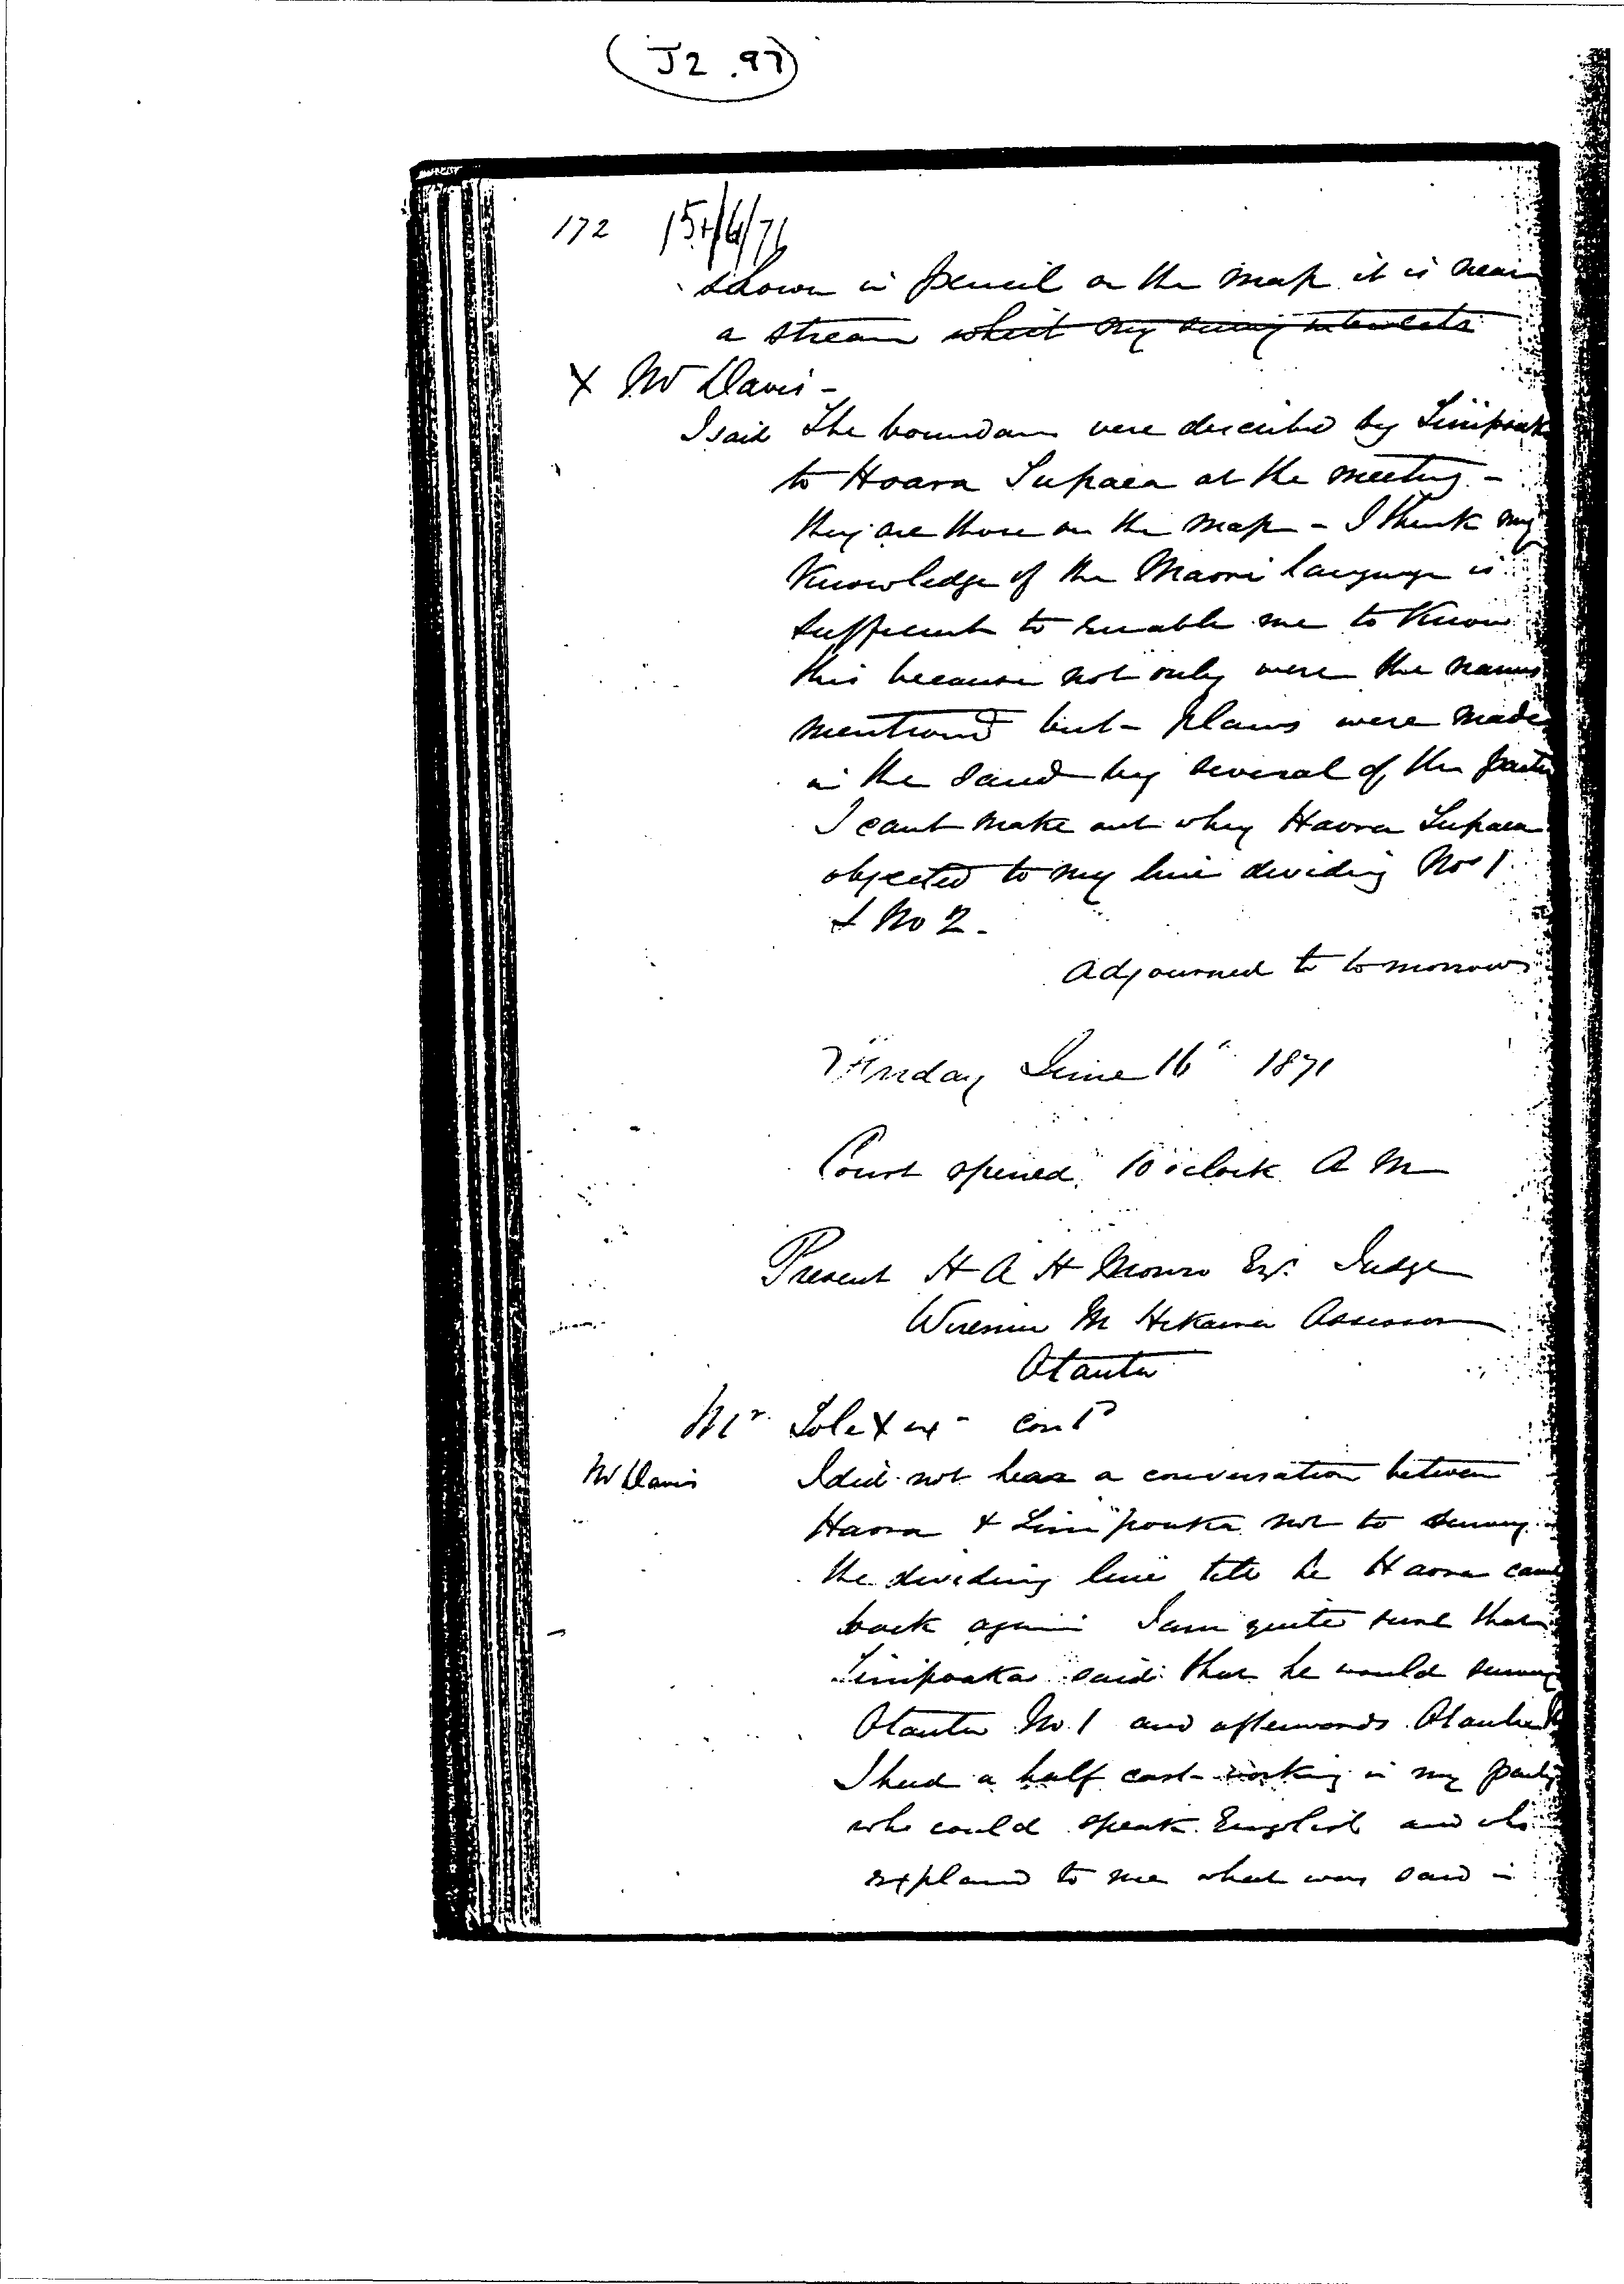 (J2.97)
172 15/6/71
shown in pencil on the map it is near
a stream which my survey intersects
X Mr Davis -
I said The boundaries were described by
to Haora Tupaea at the meeting -
they are those on the map - I think my
Knowledge of the Maori language is
sufficient to enable me to Know
this because not only were the names
mentioned but - plans were made
in the sand by several of the party
I cant make out why Haora Tupaea
objected to my line dividing No 1
& No 2 -
adjourned to tomorrow
Friday June 16th 1871
Court opened 10 oclock A M
Present H A H Monro Esq. Judge
Assessor
Otautu
Mr Tole X ex - contd
Mr Davis I did not hear a conversation between
Haora & not to survey
the dividing line till he Haora came
back again I am quite sure that
said that he would survey
Otautu No. 1 and afterwards Otautu
I had a half cast working in my party
who could speak English and who
explained to me what was said in